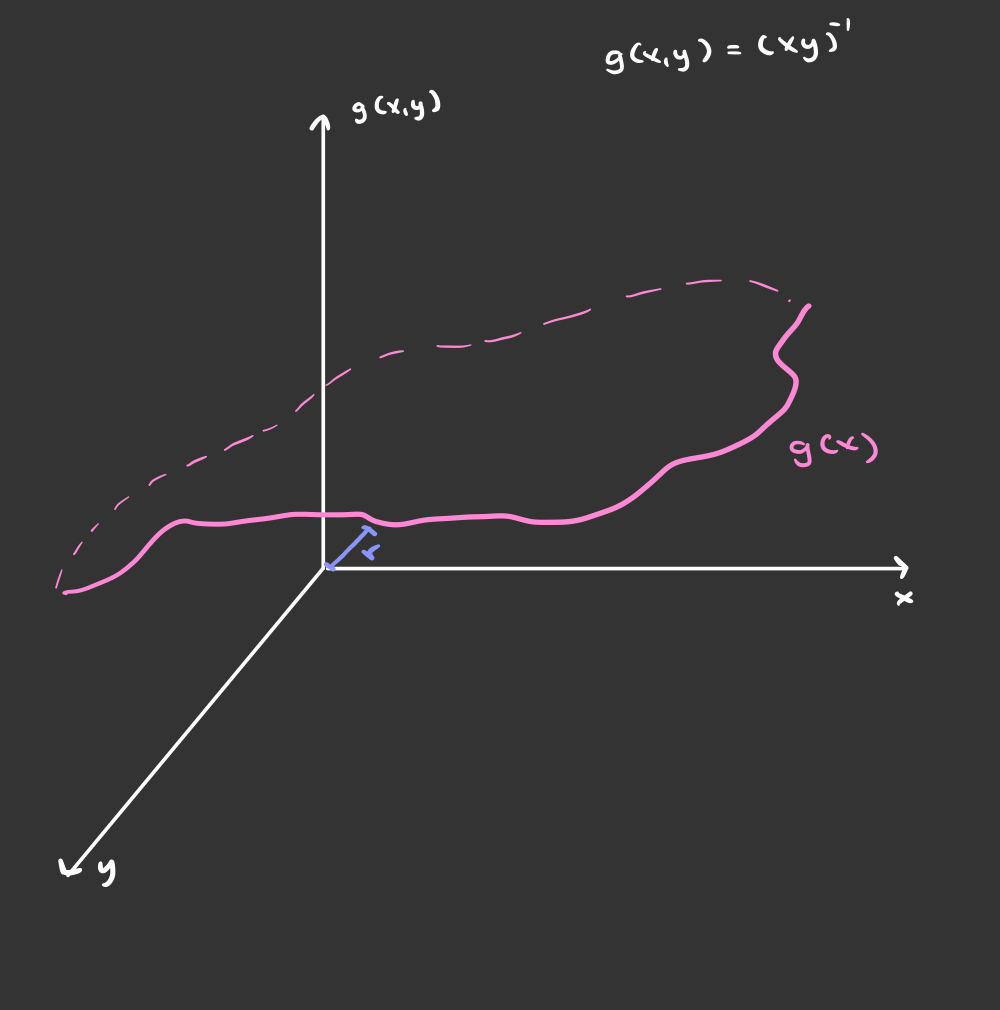 g(x,y) = (xy)⁻¹
g(x,y)
g(x)
r
x
y